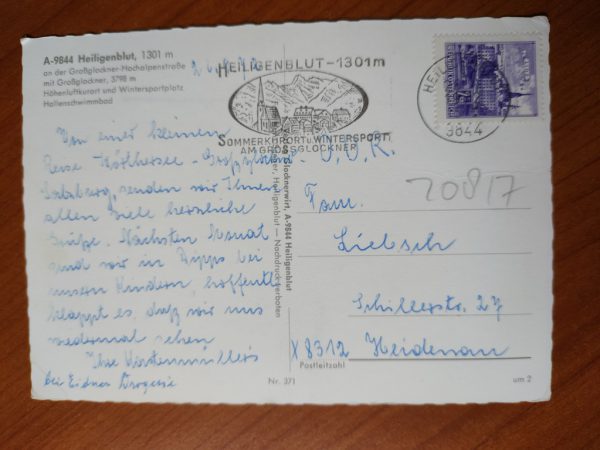 A-9844 Heiligenblut, 1301 m
an der Großglockner-Hochalpenstraße
mit Großglockner, 3798 m
Höhenluftkurort und Wintersportplatz
Hallenschwimmbad
HEILIGENBLUT-1301m
SOMMERKURORT u. WINTERSPORT
AM GROSSGLOCKNER
9844
Von einer kleinen
Reise, Wörthersee - Großglockner-
Salzberg, senden wir Ihnen
allen viele herzliche
Grüße. Nächsten Monat
sind wir in Ripps bei
unseren Kindern, hoffentl.
klappt es, daß wir uns
wiedermal sehen
Ihre
bei Eidner Drogerie
Fam.
Liebsch
Schillerstr. 27
X 8312 Heidenau
20817
Postleitzahl
Nr. 371
um 2
A-9844 Heiligenblut
Heiligenblut — Nachdruck verboten